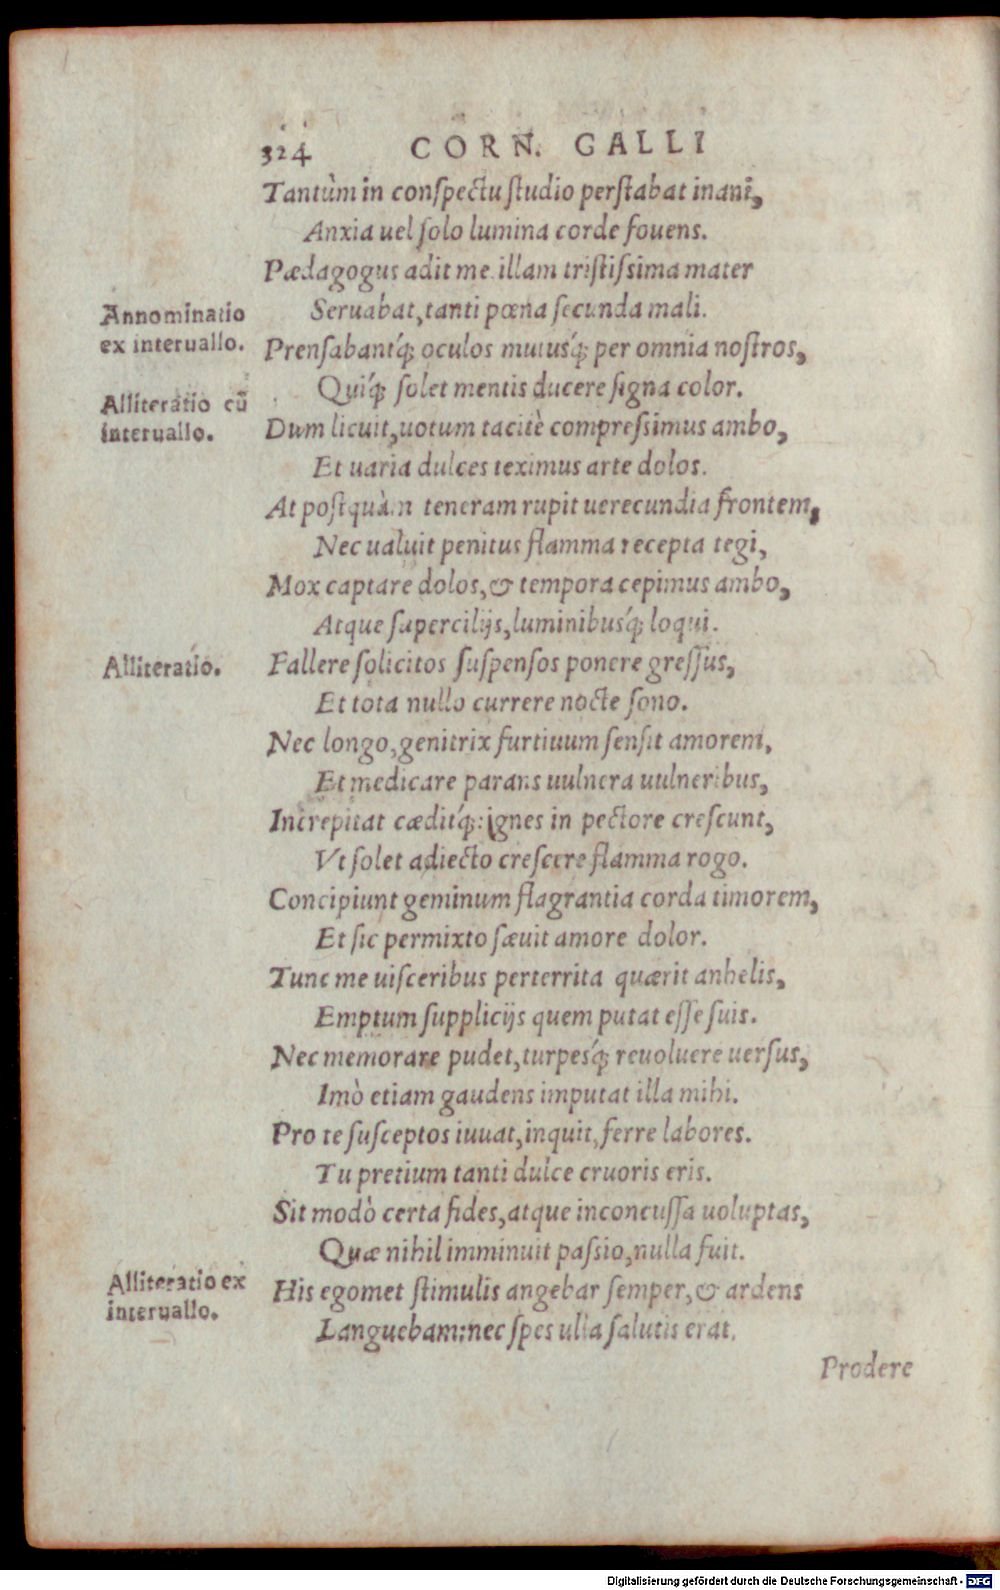 324 CORN. GALLI
Tantùm in conſpectu ſtudio perſtabat inani,
Anxia uel ſolo lumina corde fouens.
Pædagogus adit me. illam triſtiſsima mater
Annominatio
Seruabat, tanti pœna ſecunda mali.
ex interuallo.
Prenſabantq́; oculos nutuśq́; per omnia noſtros,
Quiq́; ſolet mentis ducere ſigna color.
Alliteratio cū
interuallo.
Dum licuit, uotum tacitè compreſsimus ambo,
Et uaria dulces teximus arte dolos.
At poſtquàm teneram rupit uerecundia frontem,
Nec ualuit penitus flamma recepta tegi,
Mox captare dolos, & tempora cepimus ambo,
Atque ſupercilijs, luminibusq́; loqui.
Alliteratio.
Fallere ſolicitos ſuſpenſos ponere greſſus,
Et tota nullo currere nocte ſono.
Nec longo, genitrix furtiuum ſenſit amorem,
Et medicare parans uulnera uulneribus,
Increpitat cæditq́;: ignes in pectore creſcunt,
Vt ſolet adiecto creſcere flamma rogo.
Concipiunt geminum flagrantia corda timorem,
Et ſic permixto ſæuit amore dolor.
Tunc me uiſceribus perterrita quærit anhelis,
Emptum ſupplicijs quem putat eſſe ſuis.
Nec memorare pudet, turpesq́; reuoluere uerſus,
Imò etiam gaudens imputat illa mihi.
Pro te ſuſceptos iuuat, inquit, ferre labores.
Tu pretium tanti dulce cruoris eris.
Sit modò certa fides, atque inconcuſſa uoluptas,
Quæ nihil imminuit paſsio, nulla fuit.
Alliteratio ex
interuallo.
His egomet ſtimulis angebar ſemper, & ardens
Languebam: nec ſpes ulla ſalutis erat.
Prodere
Digitalisierung gefördert durch die Deutsche Forschungsgemeinschaft - DFG